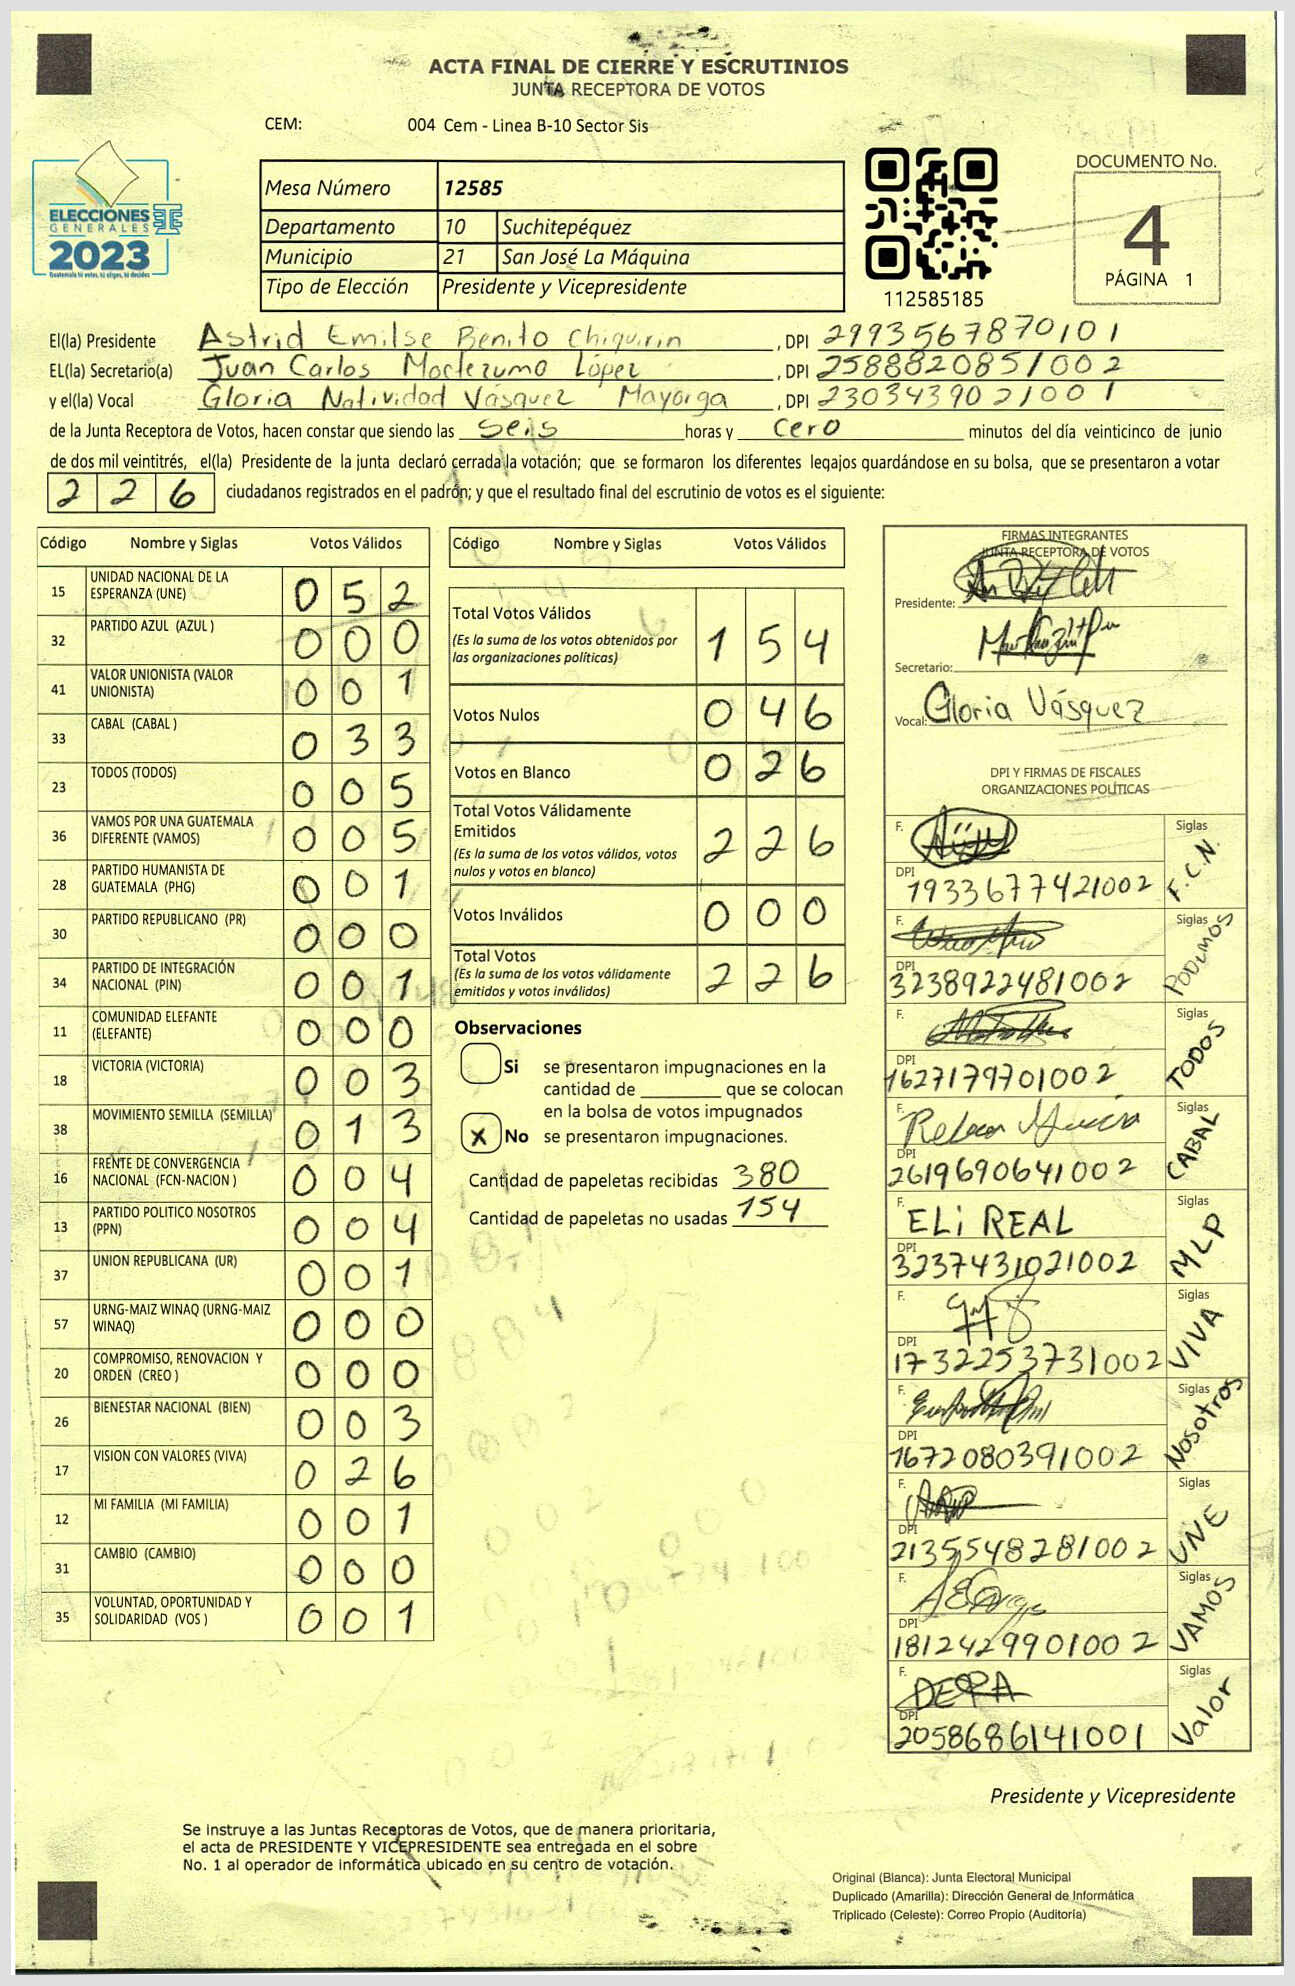 ACTA FINAL DE CIERRE Y ESCRUTINIOS
JUNTA RECEPTORA DE VOTOS
CEM: 004 Cem - Linea B-10 Sector Sis
ELECCIONES
GENERALES
2023
Guatemala tú votas, tú eliges, tú decides
Mesa Número 12585
Departamento 10 Suchitepéquez
Municipio 21 San José La Máquina
Tipo de Elección Presidente y Vicepresidente
112585185
DOCUMENTO No.
4
PÁGINA 1
El(la) Presidente Astrid Emilse Benito Chiquirin , DPI 2993567870101
EL(la) Secretario(a) Juan Carlos Moctezuma López , DPI 2588820851002
y el(la) Vocal Gloria Natividad Vásquez Mayorga , DPI 2303439021001
de la Junta Receptora de Votos, hacen constar que siendo las seis horas y cero minutos del día veinticinco de junio
de dos mil veintitrés, el(la) Presidente de la junta declaró cerrada la votación; que se formaron los diferentes legajos guardándose en su bolsa, que se presentaron a votar
226 ciudadanos registrados en el padrón; y que el resultado final del escrutinio de votos es el siguiente:
Código Nombre y Siglas Votos Válidos
15 UNIDAD NACIONAL DE LA ESPERANZA (UNE) 052
32 PARTIDO AZUL (AZUL ) 000
41 VALOR UNIONISTA (VALOR UNIONISTA) 001
33 CABAL (CABAL ) 033
23 TODOS (TODOS) 005
36 VAMOS POR UNA GUATEMALA DIFERENTE (VAMOS) 005
28 PARTIDO HUMANISTA DE GUATEMALA (PHG) 001
30 PARTIDO REPUBLICANO (PR) 000
34 PARTIDO DE INTEGRACIÓN NACIONAL (PIN) 001
11 COMUNIDAD ELEFANTE (ELEFANTE) 000
18 VICTORIA (VICTORIA) 003
38 MOVIMIENTO SEMILLA (SEMILLA) 013
16 FRENTE DE CONVERGENCIA NACIONAL (FCN-NACION ) 004
13 PARTIDO POLITICO NOSOTROS (PPN) 004
37 UNION REPUBLICANA (UR) 001
57 URNG-MAIZ WINAQ (URNG-MAIZ WINAQ) 000
20 COMPROMISO, RENOVACION Y ORDEN (CREO ) 000
26 BIENESTAR NACIONAL (BIEN) 003
17 VISION CON VALORES (VIVA) 026
12 MI FAMILIA (MI FAMILIA) 001
31 CAMBIO (CAMBIO) 000
35 VOLUNTAD, OPORTUNIDAD Y SOLIDARIDAD (VOS ) 001
Código Nombre y Siglas Votos Válidos
Total Votos Válidos 154
(Es la suma de los votos obtenidos por
las organizaciones políticas)
Votos Nulos 046
Votos en Blanco 026
Total Votos Válidamente
Emitidos 226
(Es la suma de los votos válidos, votos
nulos y votos en blanco)
Votos Inválidos 000
Total Votos 226
(Es la suma de los votos válidamente
emitidos y votos inválidos)
Observaciones
Si se presentaron impugnaciones en la
cantidad de ________ que se colocan
en la bolsa de votos impugnados
X No se presentaron impugnaciones.
Cantidad de papeletas recibidas 380
Cantidad de papeletas no usadas 154
FIRMAS INTEGRANTES
JUNTA RECEPTORA DE VOTOS
Presidente:
Secretario:
Vocal: Gloria Vásquez
DPI Y FIRMAS DE FISCALES
ORGANIZACIONES POLÍTICAS
F. Siglas F.C.N.
DPI 1933677421002
F. Siglas PODEMOS
DPI 3238922481002
F. Siglas TODOS
DPI 1627179701002
F. Siglas CABAL
DPI 2619690641002
F. ELi REAL Siglas MLP
DPI 3237431021002
F. Siglas VIVA
DPI 1732253731002
F. Siglas Nosotros
DPI 1672080391002
F. Siglas UNE
DPI 2135548281002
F. Siglas VAMOS
DPI 1812429901002
F. Siglas Valor
DPI 2058686141001
Presidente y Vicepresidente
Se instruye a las Juntas Receptoras de Votos, que de manera prioritaria,
el acta de PRESIDENTE Y VICEPRESIDENTE sea entregada en el sobre
No. 1 al operador de informática ubicado en su centro de votación.
Original (Blanca): Junta Electoral Municipal
Duplicado (Amarilla): Dirección General de Informática
Triplicado (Celeste): Correo Propio (Auditoría)